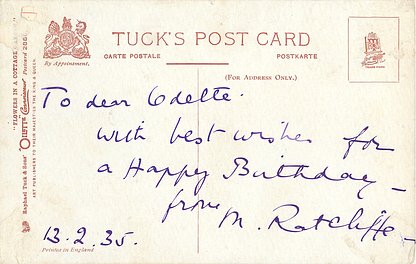 TUCK'S POST CARD
By Appointment.
CARTE POSTALE
POSTKARTE
(FOR ADDRESS ONLY.)
To dear Odette.
with best wishes for
a Happy Birthday
from
M. Ratcliffe
13.2.35.
Printed in England
Raphael Tuck & Sons' "OILETTE"
"FLOWERS IN A COTTAGE
ART PUBLISHERS TO THEIR MAJESTIES THE KING & QUEEN.